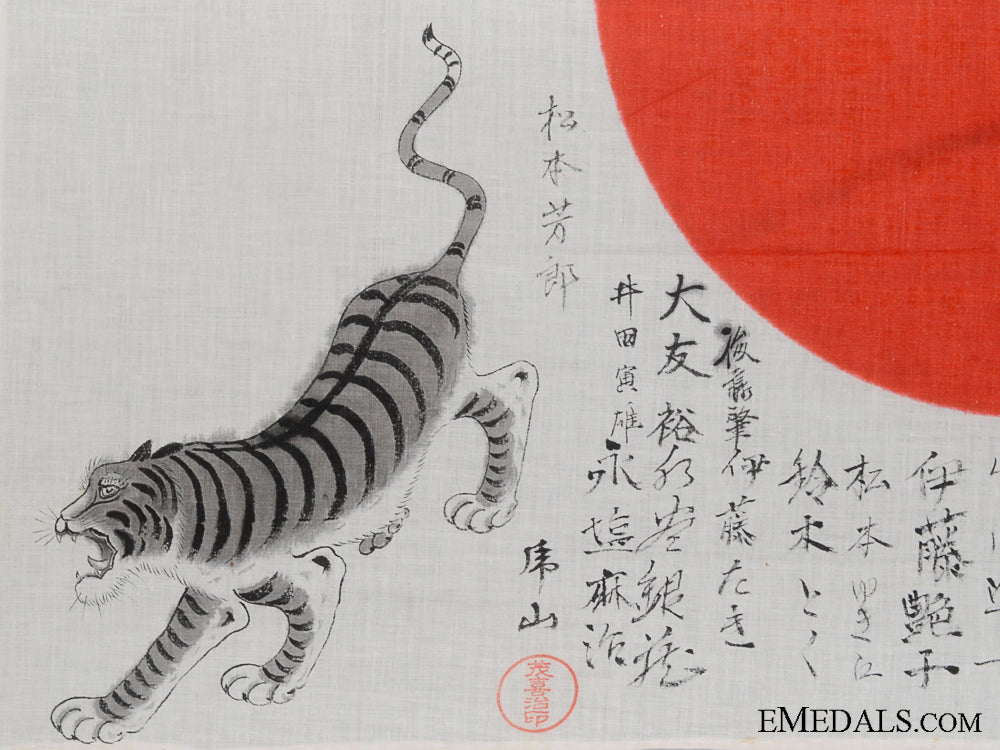 伊藤艶子
松本ゆき江
鈴木とく
後藤肇
伊藤たき
大友裕
永安銀蔵
井田寅雄
永塩麻治
松本芳郎
虎山
茂喜治印
EMEDALS.COM